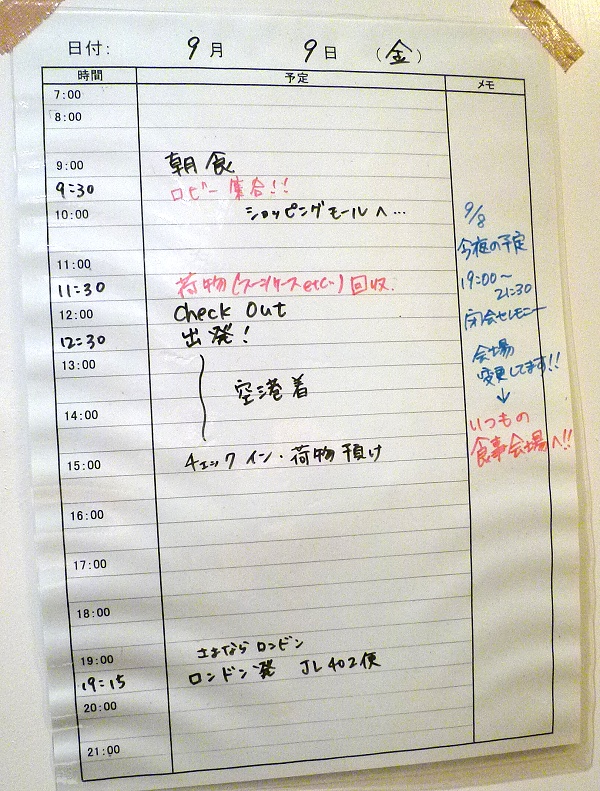 日付: 9月 9日 (金)
時間 予定 メモ
7:00
8:00
9:00 朝食
9:30 ロビー集合!!
10:00 ショッピングモールへ…
11:00
11:30 荷物(スーツケースetc)回収.
12:00 Check Out
12:30 出発!
13:00
空港着
14:00
15:00 チェックイン・荷物預け
16:00
17:00
18:00
19:00 さよならロンドン
19:15 ロンドン発 JL402便
20:00
21:00
9/8
今夜の予定
19:00〜
21:30
閉会セレモニー
会場
変更してます!!
↓
いつもの
食事会場へ!!